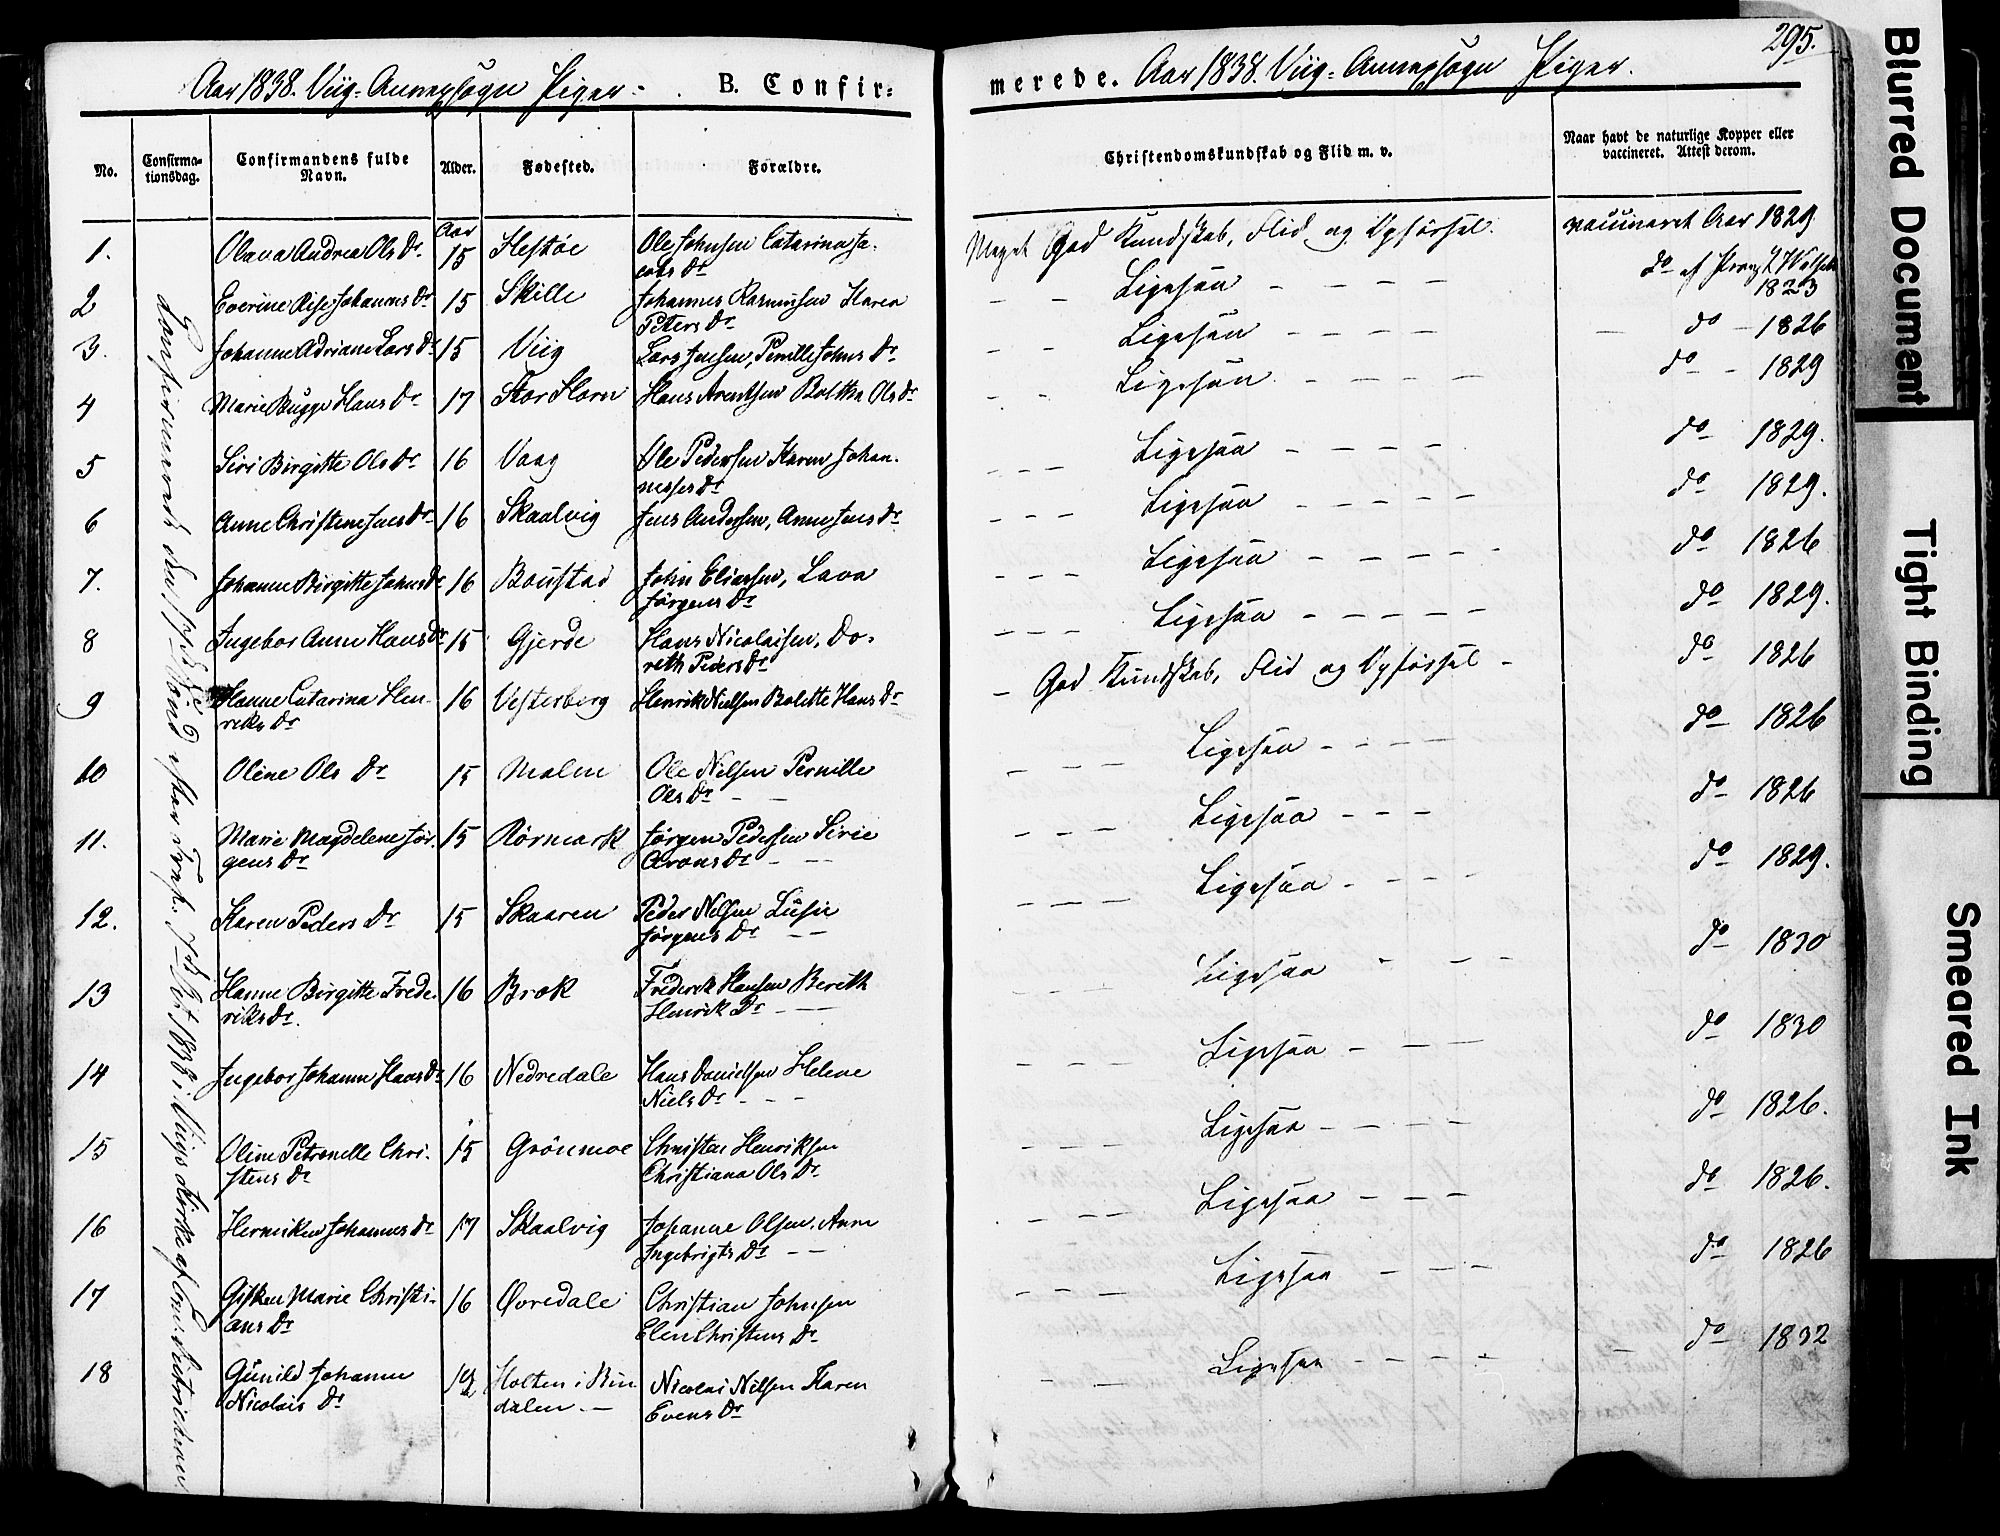 295.
Aar 1838. Viig-Annexsogn Piger. B. Confir-
merede. Aar 1838. Viig-Annexsogn Piger.
No.
Confirma-
tionsdag.
Confirmandens fulde
Navn.
Alder.
Fødested.
Forældre.
Christendomskundskab og Flid m. v.
Naar havt de naturlige Kopper eller
vaccineret. Attest derom.
Aar
1. Olava Andrea Ols Dr 15 Hestøe Ole Johnsen Catarina Ja-
cobs Dr
Meget God Kundskab, Flid og Opførsel. vaccineret Aar 1829
2 Everine Johanens Dr 15 Skille Johannes Rasmusen Karen
Peters Dr
Ligesaa do af
1823
3. Johanne Adriane Lars Dr 15 Viig Lars Jensen, Pernille Johns Dr
Ligesaa do 1826
4 Marie Bugge Hans Dr 17 Stor Horn Hans Arentsen Ols Dr
Ligesaa do 1829
5 Siri Birgitte Ols Dr 16 Vaag Ole Pedersen Karen Johan-
nesses Dr
Ligesaa do 1829.
6 Anne Christene Jens Dr 16 Skaalvig Jens Andersen, Anne Jens Dr
Ligesaa do 1829.
7. Johanne Birgitte Johns Dr 16 Boustad John Eliassen, Lava
Jørgens Dr
Ligesaa do 1826
8 Ingebor Anne Hans Dr 15 Gjerde Hans Nicolaisen, Do-
reth Peders Dr
Ligesaa do 1829.
9 Hanne Catarina Hen-
riks Dr 16 Vesterberg Henrik Nielsen Bolette Hans Dr
God Kundskab, Flid og Opførsel do 1826
10 Oline Ols Dr 15 Malm Ole Nilsen Pernille
Ols Dr
Ligesaa do 1826
11. Marie Magdelene Jør-
gens Dr 15 Rørmark Jørgen Pedersen Sirie
Arons Dr
Ligesaa do 1826
12. Karen Peders Dr 15 Skaaren Peder Nilsen Lusie
Jørgens Dr
Ligesaa do 1829.
13 Hanne Birgitte Frede-
riks Dr. 16 Brok Frederik Hansen Bereth
Henrik Dr
Ligesaa do 1830
14 Ingebor Johanne Hans Dr 16 Nedredale Hans Danielsen Helene
Niels Dr
Ligesaa do 1830
15 Oline Petronelle Chri-
stens Dr 15 Grönmoe Christen Henriksen
Christiana Ols Dr
Ligesaa do 1826.
16 Henriken Johannes Dr 17 Skaalvig Johanne Olsen, Anne
Ingebrigts Dr
Ligesaa do 1826.
17 Gisken Marie Christi-
ans Dr 16 Øvredale Christian Johnsen
Elen Christens Dr
Ligesaa do 1826
18 Gunild Johanne
Nicolais Dr Holten i Bin
dalen Nicolai Nilsen Karen
Evens Dr
Ligesaa do 1832
Confirmerede den Sønd. efter Trefk. 7de Oct 1838 i Viigs Kirke af
Blurred Document
Tight Binding
Smeared Ink